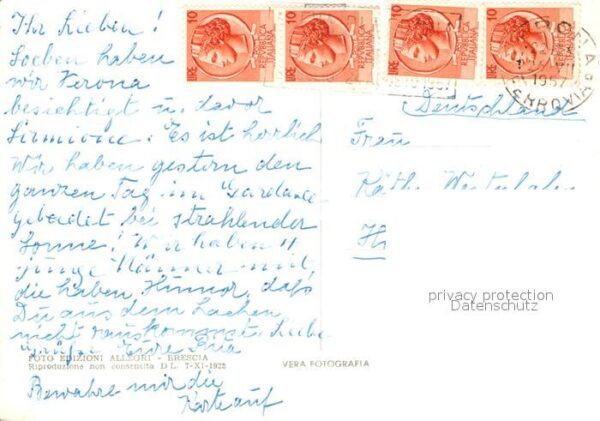 Ihr Lieben!
Soeben haben
wir Verona
besichtigt u. davor
Sirmione. Es ist herrlich
Wir haben gestern den
ganzen Tag im Gardasee
gebadet bei strahlender
Sonne! Wir haben 11
junge Männer mit,
die haben Humor, daß
Du aus dem Lachen
nicht rauskommst. Liebe
Grüße Eure
FOTO EDIZIONI ALLEGRI - BRESCIA
Riproduzione non consentita D L. 7-XI-1925
Bewahre mir die
Karte auf
VERA FOTOGRAFIA
10 LIRE REPUBBLICA ITALIANA
10 LIRE REPUBBLICA ITALIANA
10 LIRE REPUBBLICA ITALIANA
10 LIRE REPUBBLICA ITALIANA
1957
FERROVIA
Deutschland
Frau
Käthe
privacy protection
Datenschutz